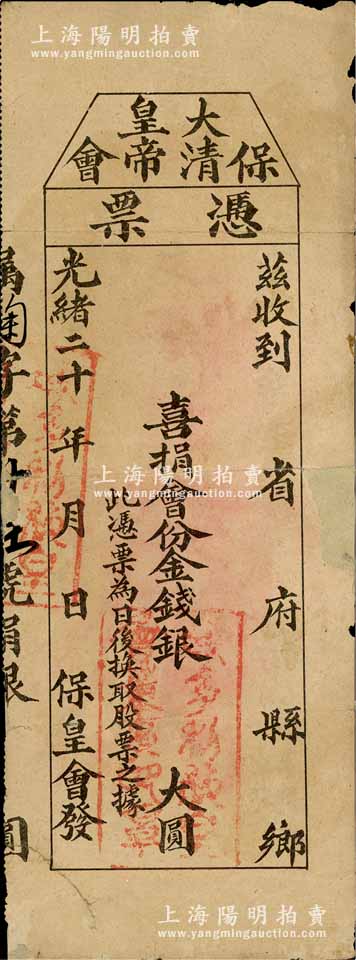 上海陽明拍賣
www.yangmingauction.com
大清皇帝保會
憑票
茲收到 省 府 縣 鄉
喜捐會份金錢銀 大圓
此憑票為日後換取股票之據
光緒二十 年 月 日 保皇會發
字第 號捐銀 圓
上海陽明拍賣
www.yangmingauction.com
上海陽明拍賣
www.yangmingauction.com